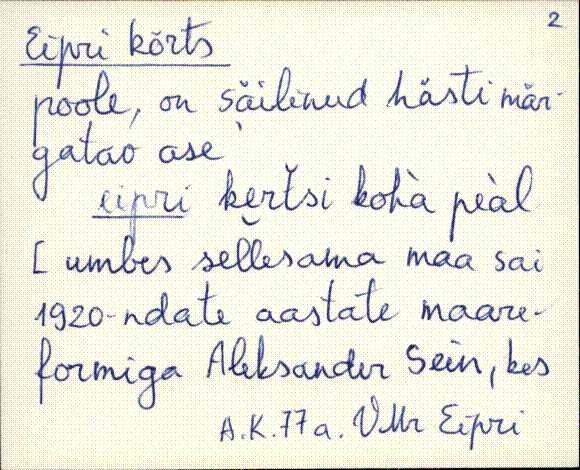 2
Eipri kõrts
poole, on säilinud hästi mär-
gatav ase
eipri kẹrt̆si koh̀a peàl
[ umbes sel̆lesama maa sai
1920-ndate aastate maare-
formiga Aleksander Sein, kes
A.K. 77 a. VMr Eipri